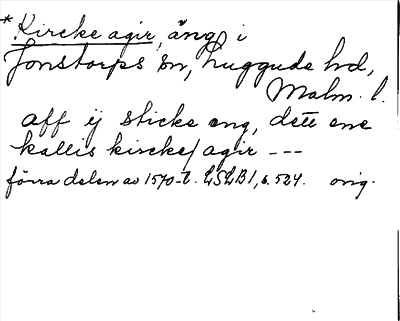 * Kircke agir, äng i
Jonstorps sn, Luggude hd,
Malm. l.
aff ij sticke eng, dett ene
kallis kircke/agir ---
förra delen av 1570-t. LSLB1, s. 524. orig.